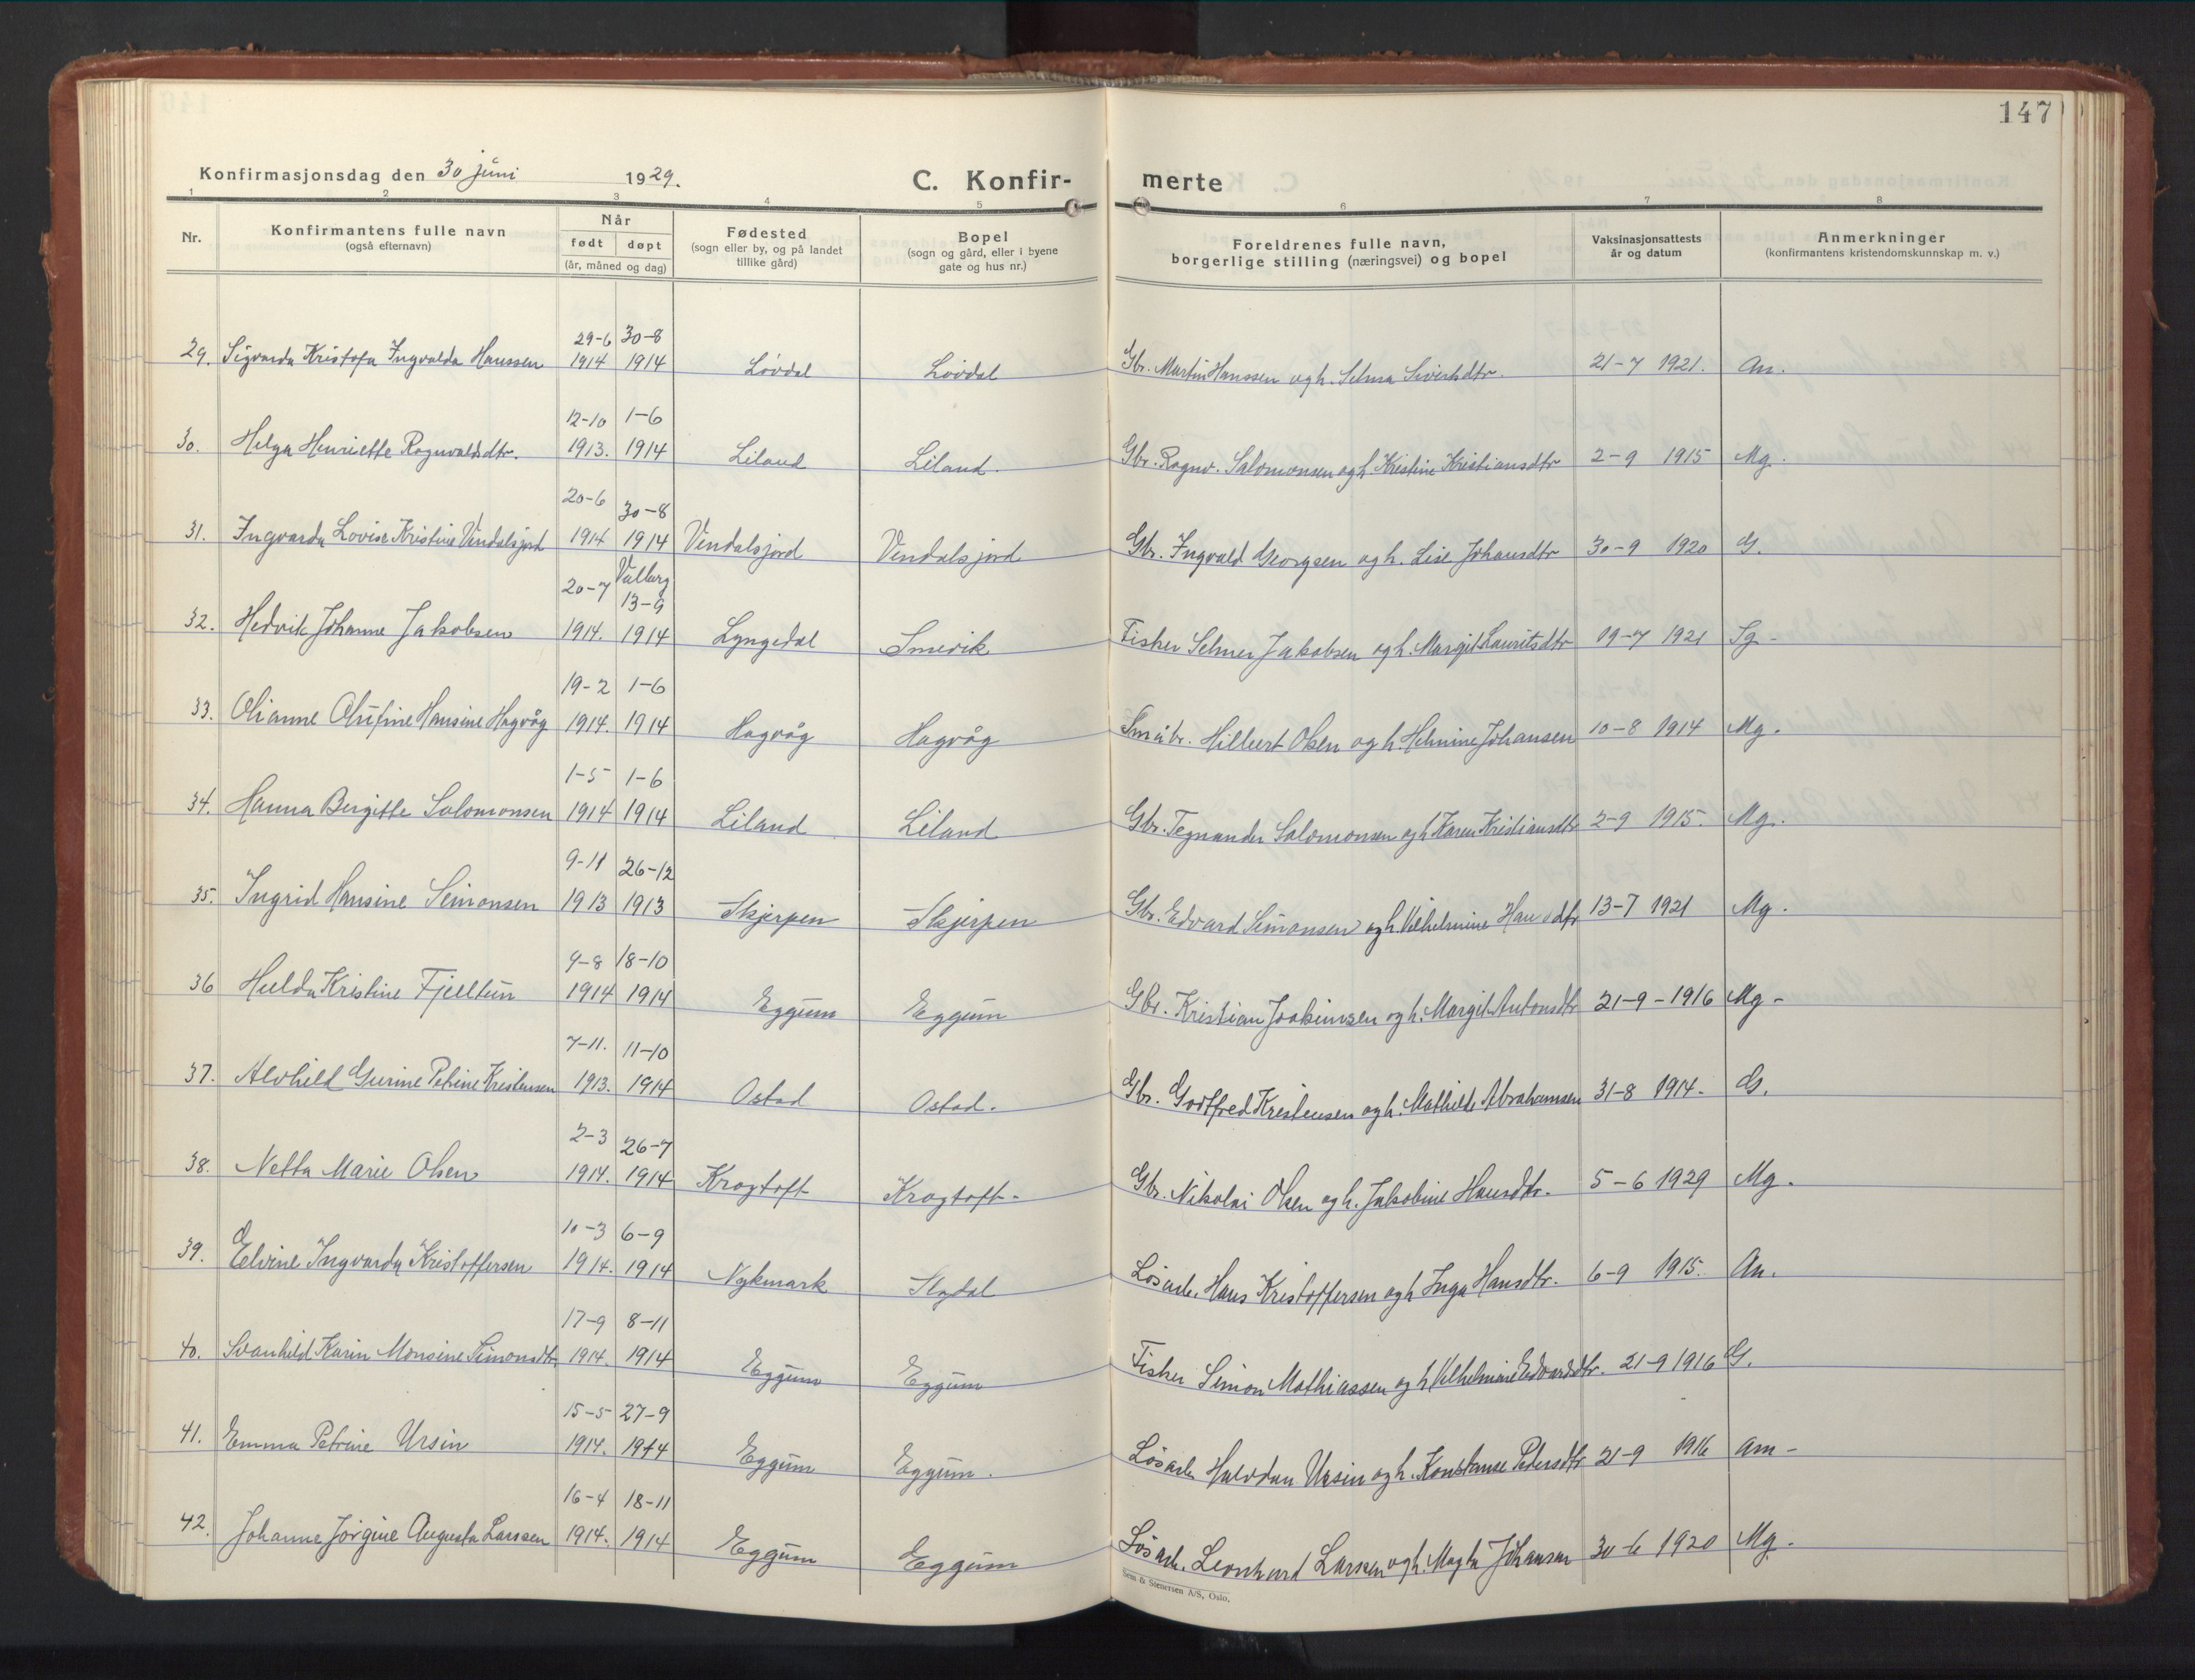 147
Konfirmasjonsdag den 30 juni 1929.
C. Konfir- merte
1 2 3 4 5 6 7 8
Nr.
Konfirmantens fulle navn
(også efternavn)
Når
født døpt
(år, måned og dag)
Fødested
(sogn eller by, og på landet
tillike gård)
Bopel
(sogn og gård, eller i byene
gate og hus nr.)
Foreldrenes fulle navn,
borgerlige stilling (næringsvei) og bopel
Vaksinasjonsattests
år og datum
Anmerkninger
(konfirmantens kristendomskunnskap m. v.)
29-6 30-8
29. Sigvarda Kristofa Ingvalda Hanssen 1914 1914 Løvdal Løvdal Gbr. Martin Hanssen og h. Selma Siverhdtr. 21-7 1921. An.
12-10 1-6
30. Helga Henriette Ragnvaldsdtr. 1913. 1914 Liland Liland. Gbr. Ragnv. Salomonsen og h Kristine Kristiansdtr 2-9 1915 Mg.
20-6 30-8
31. Ingvarda Lovise Kristine Vindalsjord 1914 1914 Vindalsjord Vindalsjord Gbr. Ingvald Georgsen og h. Lise Johansdtr 30-9 1920 G.
20-7 Valberg 13-9
32. Hedvik Johanne Jakobsen 1914. 1914 Lyngedal Smevik Fisker Selmer Jakobsen og h. Margit Lauritsdtr 19-7 1921 Sg -
19-2 1-6
33. Olianne Olufine Hansine Hagvåg 1914. 1914 Hagvåg Hagvåg Småbr. Hilbert Olsen og h. Helmine Johansen 10-8 1914 Mg.
1-5 1-6
34. Hanna Bergitte Salomonsen 1914 1914 Liland Liland Gbr. Tegnander Salomonsen og h Karen Kristiansdtr 2-9 1915. Mg.
9-11 26-12
35. Ingrid Hansine Simonsen 1913 1913 Skjerpen Skjerpen Gbr. Edvard Simonsen og h. Vilhelmine Hansdtr 13-7 1921 Mg.
9-8 18-10
36 Hulda Kristine Fjelltun 1914 1914 Eggum Eggum Gbr. Kristian Joakimsen og h. Margit Antonsdtr 21-9-1916 Mg -
7-11. 11-10
37. Alvhild Gurine Petrine Kristensen 1913. 1914 Ostad Ostad. Gbr. Godtfred Kristensen og h. Mathilde Abrahamsen 31-8 1914. G.
2-3 26-7
38. Netta Marie Olsen 1914. 1914 Krogtoft Krogtoft - Gbr. Nikolai Olsen og h. Jakobine Hansdtr. 5-6 1929 Mg.
10-3 6-9
39. Elvine Ingvarda Kristoffersen 1914. 1914 Nykmark Slydal Løsarb. Hans Kristoffersen og h Inga Hansdtr. 6-9 1915. An.
17-9 8-11
40. Svanhild Karin Monsine Simonsdtr. 1914. 1914 Eggum Eggum Fisker Simon Mathiassen og h Vilhelmine Edvardsdtr. 21-9 1916 G.
15-5 27-9
41. Emma Petrine Ursin 1914. 1914 Eggum Eggum. Løsarb Halvdan Ursin og h. Konstanse Pedersdtr 21-9 1916 Am -
16-4 18-11
42. Johanne Jørgine Augusta Larssen 1914. 1914 Eggum Eggum Løsarb. Leonhard Larssen og h. Magda Johansen 30-6 1920 Mg.
Sem & Stenersen A/S, Oslo.